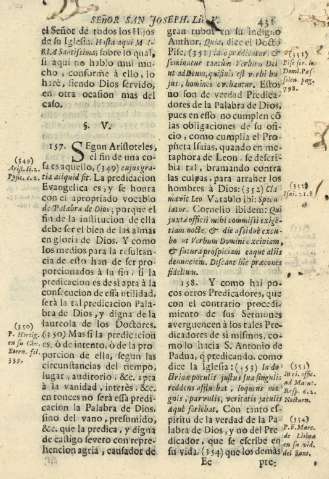 SEÑOR SAN JOSEPH. Lib.
436
el Señor de todos los Hijos
de su Iglesia. Hasta aqui MA-
RIA Santissima, sobre lo qual,
si aqui no hablo mui mu-
cho, conforme à ello, lo
harè, siendo Dios servido,
en otra ocasion mas del
caso.
§. V.
157. Segun Aristoteles,
el fin de una co-
sa es aquello, (349) cujus gra-
tia aliquid fit. La predicacion
Evangelica es, y se honra
con el apropriado vocablo
de Palabra de Dios, y porque el
fin de la institucion de ella
debe ser el bien de las almas
en gloria de Dios. Y como
los medios para la consisten-
cia de esto han de ser pro-
porcionados à la fin, si la
predicacion es desi apta à la
consecucion de essa utilidad,
serà la tal predicacion Pala-
bra de Dios, y digna de la
laureola de los Doctores.
(350) Mas si la predicacion
es, ò de intento, ò de la pro-
porcion de ella, segun las
circunstancias del tiempo,
lugar, auditorio, &c. apta
à la vanidad, interès, &c.
entonces no serà essa predi-
cacion la Palabra de Dios,
sino del vano, presumido,
&c. que la predica, y digna
de castigo severo con repre-
hencion agria, causador de
(349)
Arist. li. 2.
Physic. c. 2.
(350)
P.
en su
339.
gran rubor en su indigno
Author. Quia, dice el Docto
Pise, (351) in
seminatur tantùm Verbum Dei
ut ad Deum, cujus est verbi hu-
jus, homines convertantur. Estos
no son de verdad Predica-
dores de la Palabra de Dios,
pues en esso no cumplen cõ
las obligaciones de su ofi-
cio, como cumplia el Pro-
pheta Isaias, quando en me-
taphora de Leon se descri-
bia tal, bramando contra
las culpas, para atraher los
hombres à Dios: (352) Cla-
mavit leo V. rabio ibi: Specu-
lator. Cornelio ibidem: Qui
juxta officii mihi commissi exige-
tiam nocte, & die assidue excu-
bo in Verbum Domini excipiam,
& futura prospiciam eaque aliis
denunciem. Discant hic præcones
fidelium.
158. Y como hai po-
cos otros Predicadores, que
con el contrario procedi-
miento de sus Sermones
averguencen à los tales Pre-
dicadores de sì mismos, co-
mo lo hacia S. Antonio de
Padua, q̃ predicando, como
dice la Iglesia: (353) In do-
Brian potuit justus sua singulis
reddens offitia, inquiens ma-
gnis, parvulis, veritatis jaculis
aquè feriebat. Con tanto es-
piritu de la verdad de la Pa-
labra de Dios, y no del Pre-
dicador, que se escribe en
su vida. (354) que los demàs
Ec
pre-
(351)
Pise
Domi.
798.
(352)
Isai. 21. 8
(353)
In offic.
ad Matut.
Resp. 6. 2.
Nocturn.
(354)
P. F. Marc.
de Lisboa
en su vid.
del Sant.